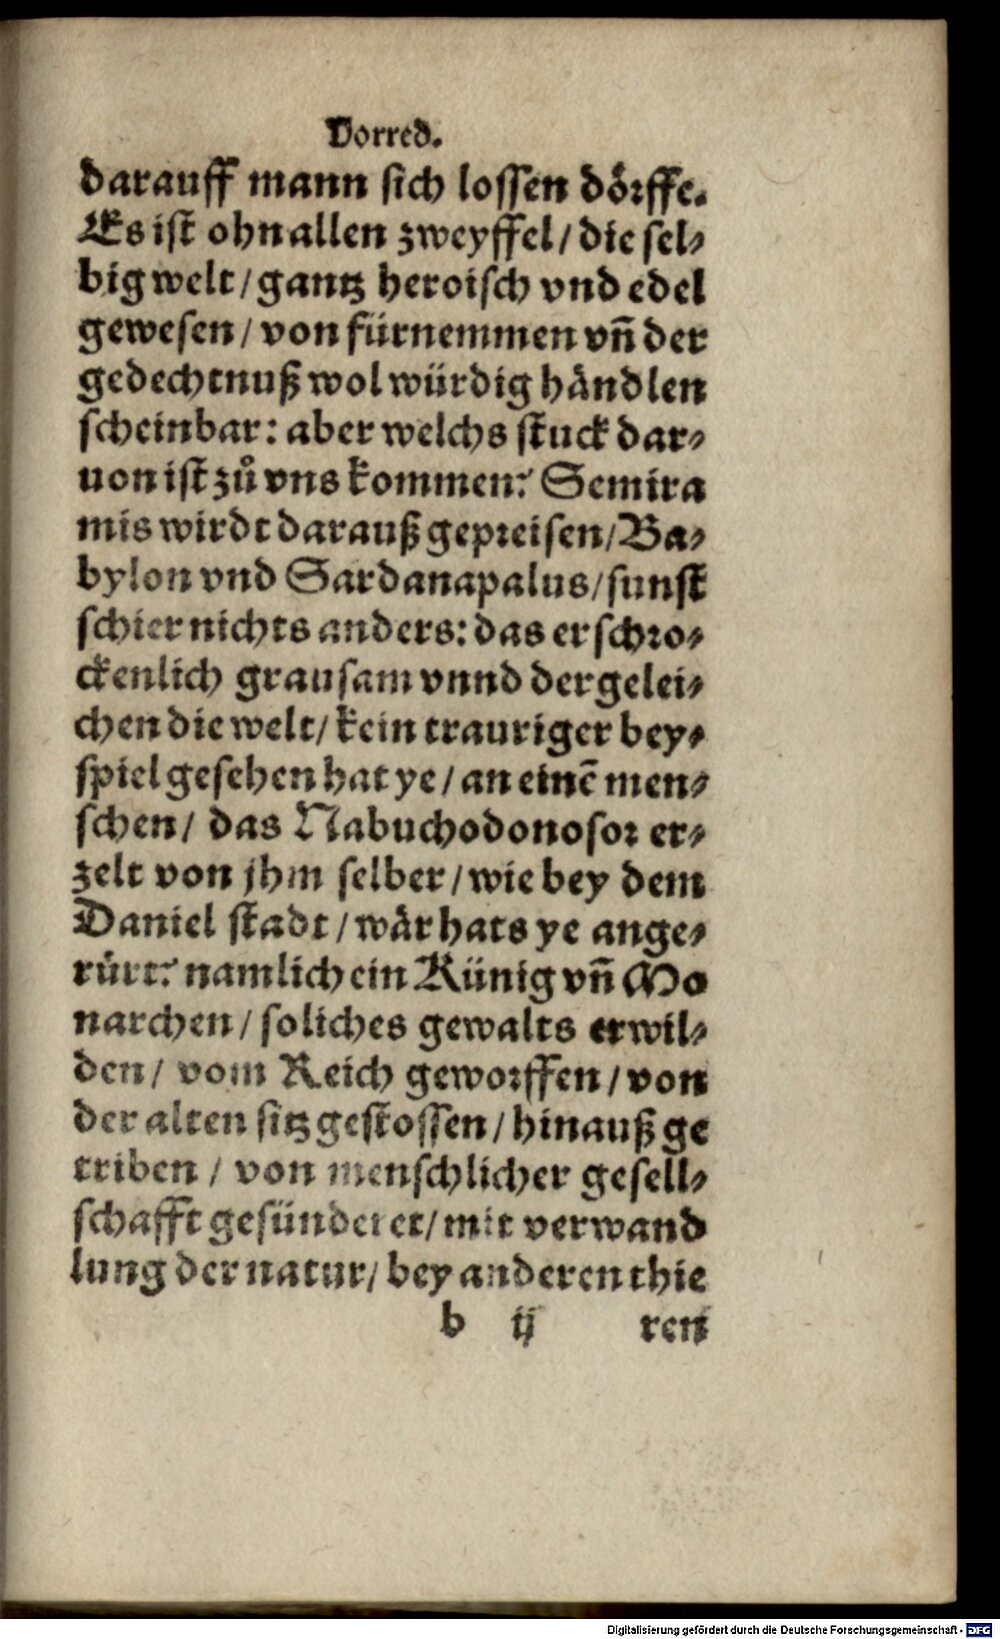 Vorred.
darauff mann sich lossen dörffe.
Es ist ohn allen zweyffel / die sel⸗
big welt / gantz heroisch vnd edel
gewesen / von fürnemmen vñ der
gedechtnuß wol würdig händlen
scheinbar: aber welchs stuck dar⸗
uon ist zů vns kommen? Semira
mis wirdt darauß gepreisen / Ba⸗
bylon vnd Sardanapalus / sunst
schier nichts anders: das erschro⸗
ckenlich grausam vnnd dergelei⸗
chen die welt / kein trauriger bey⸗
spiel gesehen hat ye / an einē men⸗
schen / das Nabuchodonosor er⸗
zelt von jhm selber / wie bey dem
Daniel stadt / wär hats ye ange⸗
rürt? namlich ein Künig vñ Mo
narchen / soliches gewalts erwil⸗
den / vom Reich geworffen / von
der alten sitz gestossen / hinauß ge
triben / von menschlicher gesell⸗
schafft gesünderet / mit verwand
lung der natur / bey anderen thie
b ij ren
Digitalisierung gefördert durch die Deutsche Forschungsgemeinschaft - DFG